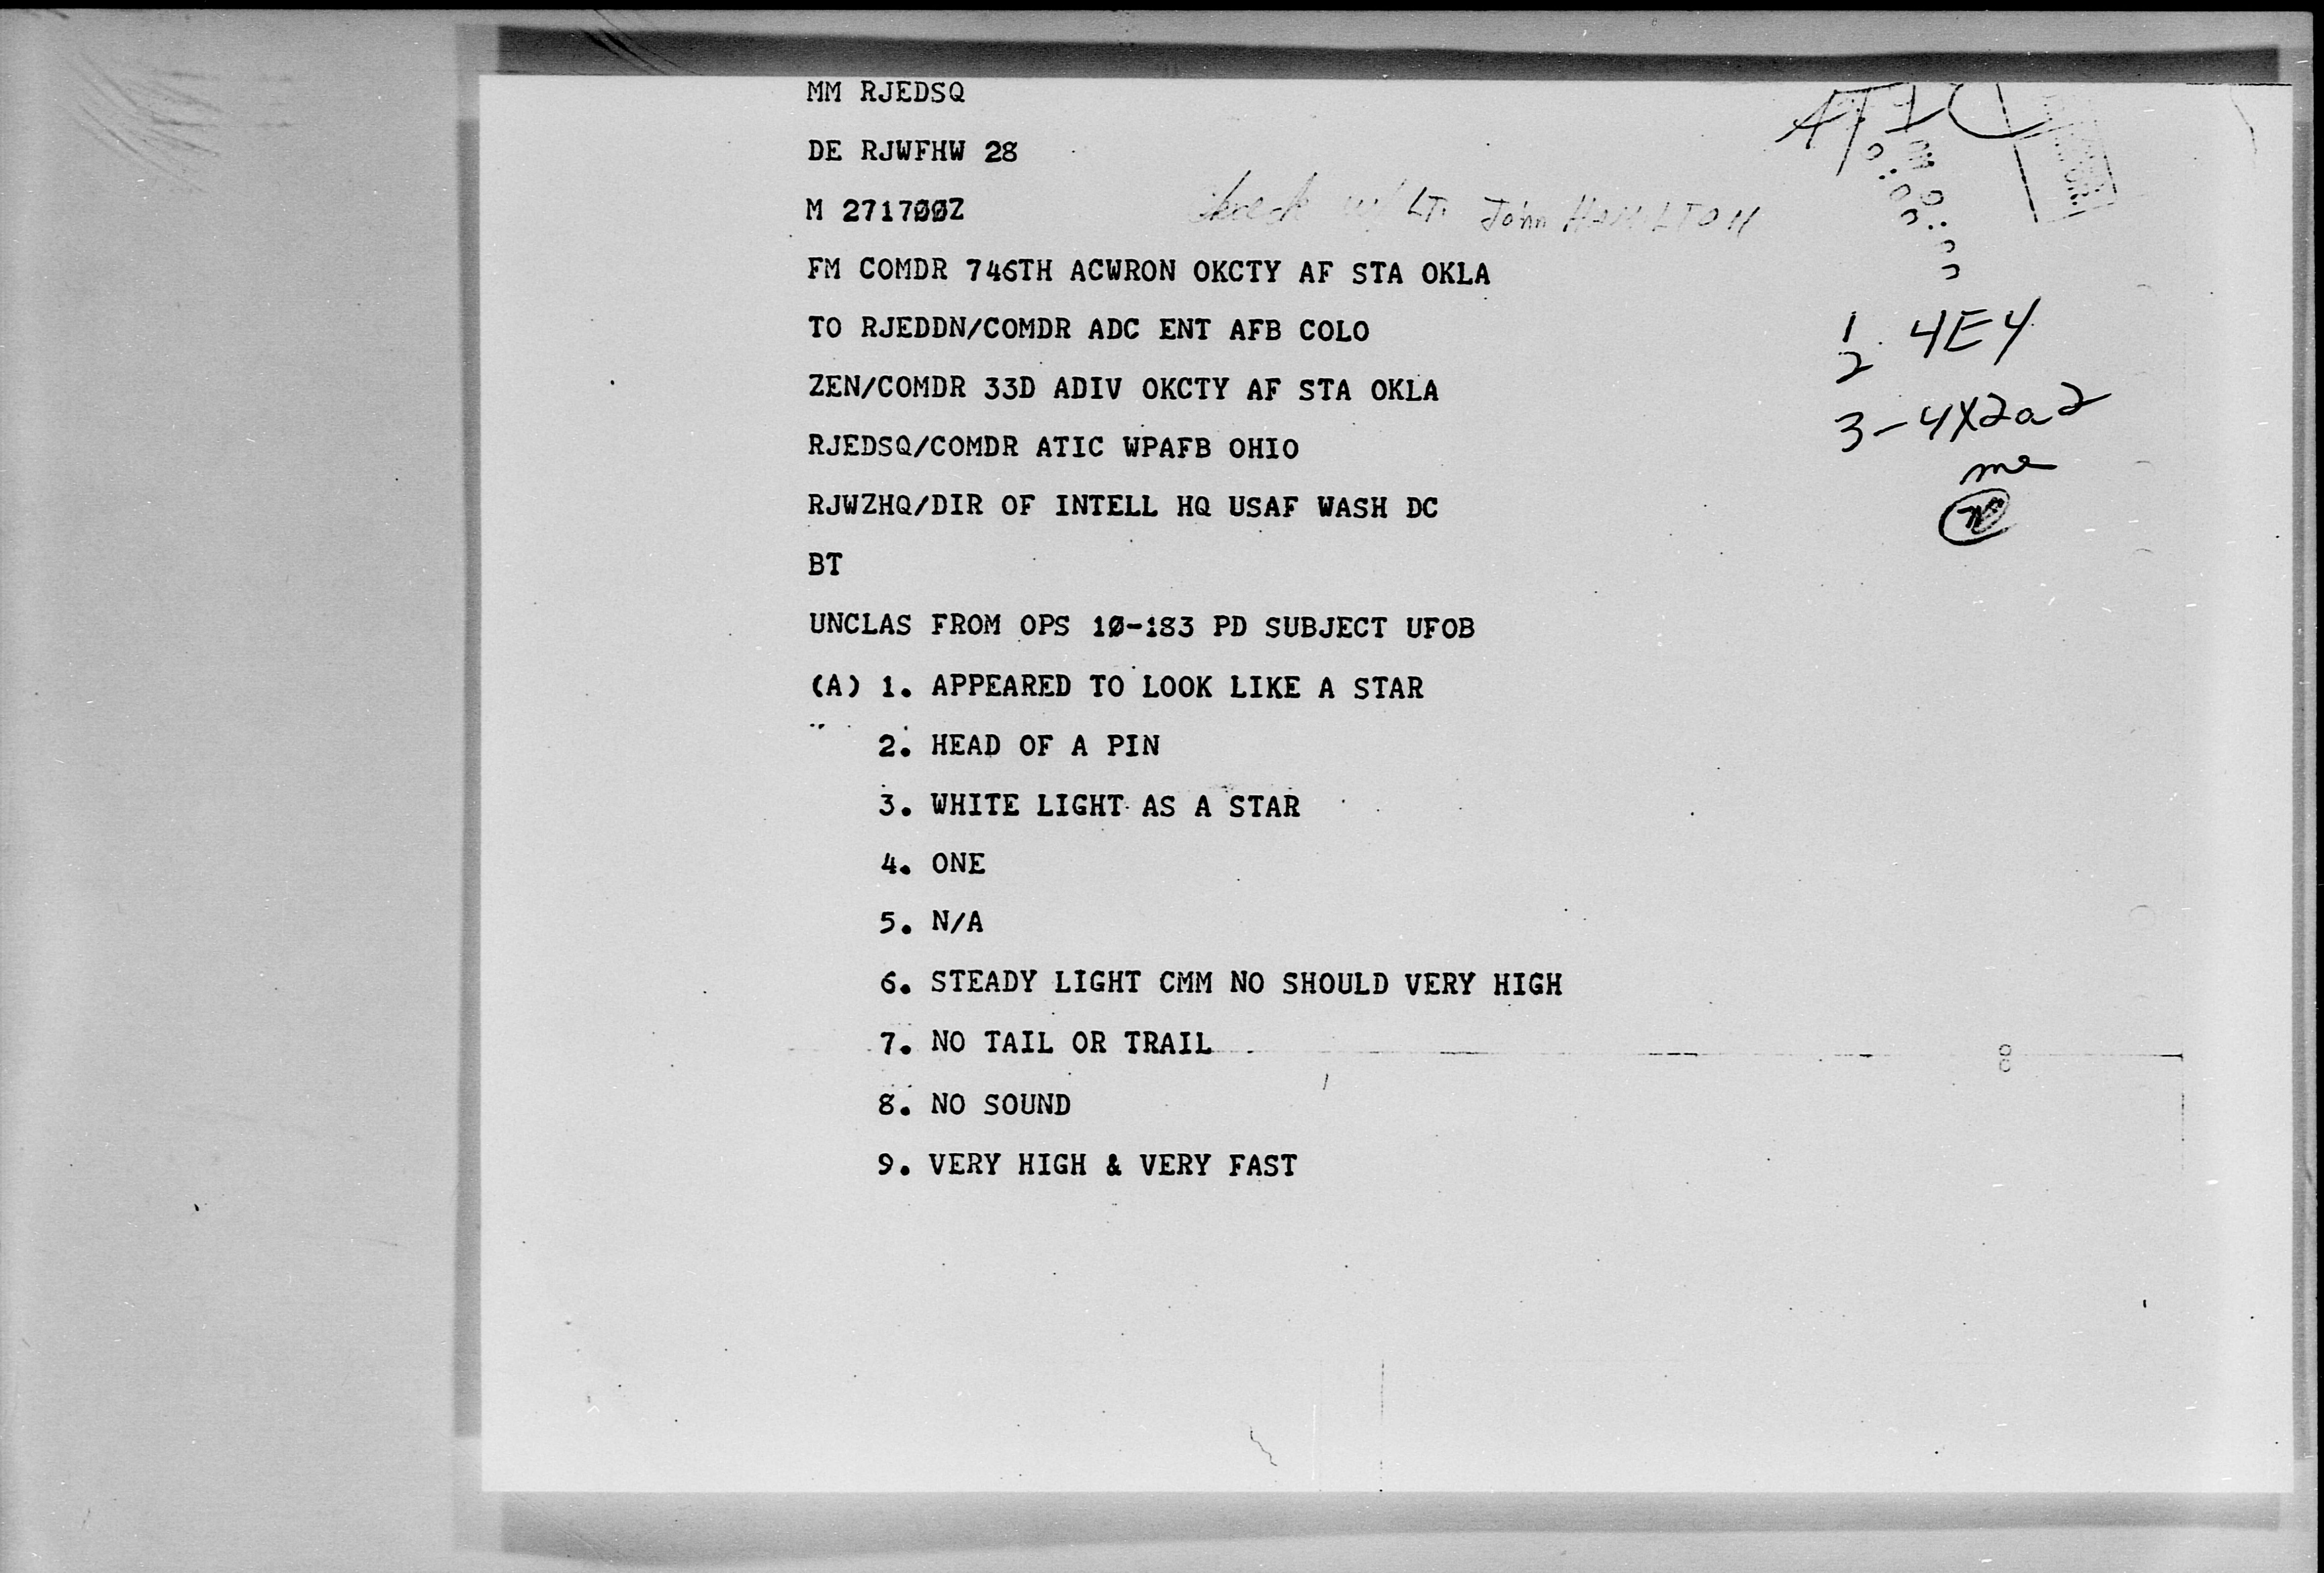 MM RJEDSQ
ATIC
DE RJWFHW 28
M 271700Z
Check w/ LT. John HAMILTON
FM COMDR 746TH ACWRON OKCTY AF STA OKLA
TO RJEDDN/COMDR ADC ENT AFB COLO
1
2. 4E4
ZEN/COMDR 33D ADIV OKCTY AF STA OKLA
3-4X2a2
RJEDSQ/COMDR ATIC WPAFB OHIO
RJWZHQ/DIR OF INTELL HQ USAF WASH DC
BT
UNCLAS FROM OPS 10-183 PD SUBJECT UFOB
(A) 1. APPEARED TO LOOK LIKE A STAR
2. HEAD OF A PIN
3. WHITE LIGHT AS A STAR
4. ONE
5. N/A
6. STEADY LIGHT CMM NO SHOULD VERY HIGH
7. NO TAIL OR TRAIL
8. NO SOUND
9. VERY HIGH & VERY FAST